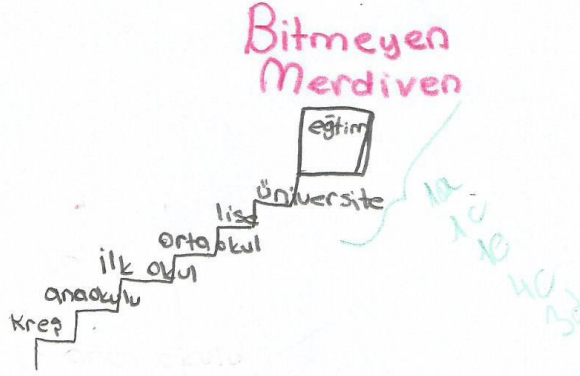 Bitmeyen
Merdiven
eğtim
üniversite
lise
orta okul
ilk okul
anaokulu
kreş